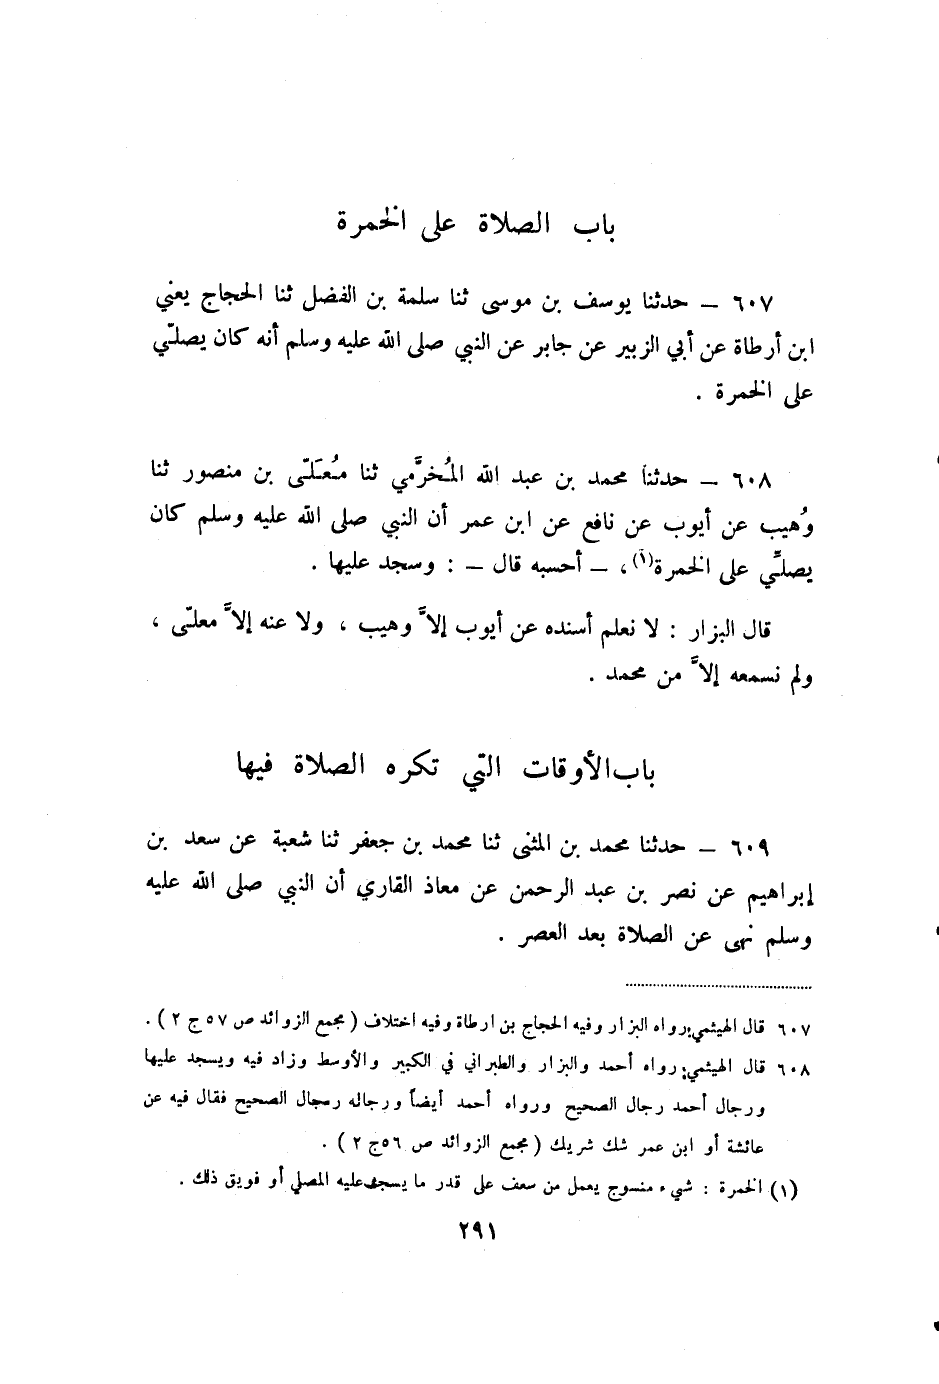 باب الصلاة على الخمرة
٦٠٧ – حدثنا يوسف بن موسى ثنا سلمة بن الفضل ثنا الحجاج يعني
ابن أرطاة عن أبي الزبير عن جابر عن النبي صلى الله عليه وسلم أنه كان يصلّي
على الخمرة .
٦٠٨ – حدثنا محمد بن عبد الله المُخرَّمي ثنا مُعَلّى بن منصور ثنا
وُهيب عن أيوب عن نافع عن ابن عمر أن النبي صلى الله عليه وسلم كان
يصلّي على الخمرة(١) ، – أحسبه قال – : وسجد عليها .
قال البزار : لا نعلم أسنده عن أيوب إلاَّ وهيب ، ولا عنه إلاَّ معلّى ،
ولم نسمعه إلاَّ من محمد .
باب الأوقات التي تكره الصلاة فيها
٦٠٩ – حدثنا محمد بن المثنى ثنا محمد بن جعفر ثنا شعبة عن سعد بن
إبراهيم عن نصر بن عبد الرحمن عن معاذ القاري أن النبي صلى الله عليه
وسلم نهى عن الصلاة بعد العصر .
٦٠٧ قال الهيثمي: رواه البزار وفيه الحجاج بن ارطاة وفيه اختلاف ( مجمع الزوائد ص ٥٧ ج ٢ ) .
٦٠٨ قال الهيثمي: رواه أحمد والبزار والطبراني في الكبير والأوسط وزاد فيه ويسجد عليها
ورجال أحمد رجال الصحيح ورواه أحمد أيضاً ورجاله رجال الصحيح فقال فيه عن
عائشة أو ابن عمر شك شريك ( مجمع الزوائد ص ٥٦ ج ٢ ) .
(١) الخمرة : شيء منسوج يعمل من سعف على قدر ما يسجد عليه المصلي أو فويق ذلك .
٢٩١